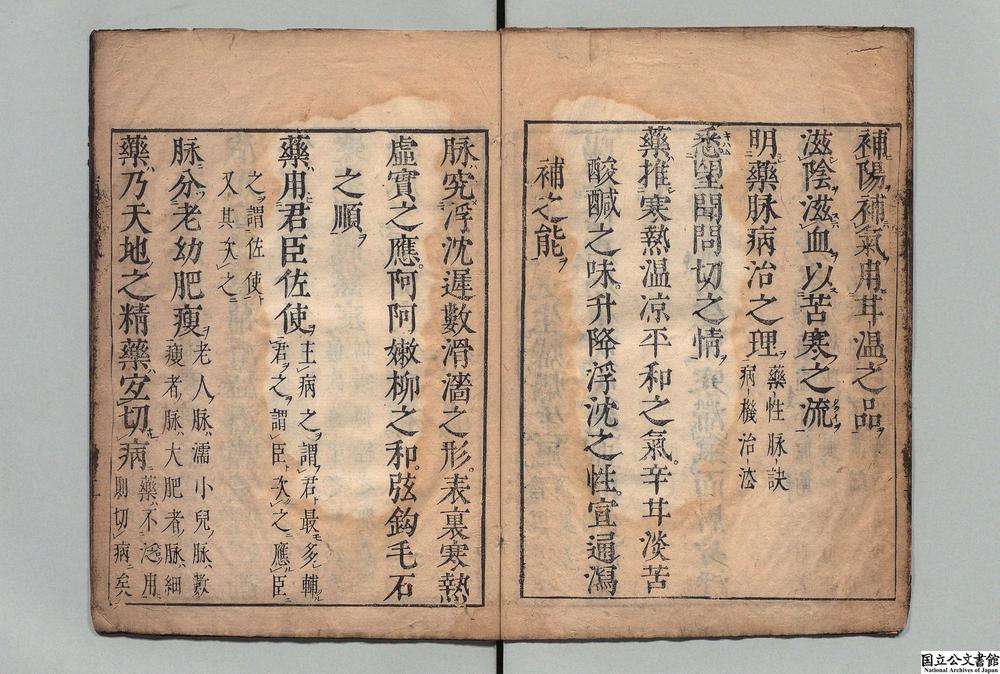 補陽補氣用甘温之品
滋陰滋血以苦寒之流
明藥脉病治之理 藥性脉訣
病機治法
悉望聞問切之情
藥推寒熱温凉平和之氣辛甘淡苦
酸鹹之味升降浮沈之性宜通瀉
補之能
脉究浮沈遲數滑濇之形表裏寒熱
虛實之應阿阿嫩柳之和弦鈎毛石
之順
藥用君臣佐使 主病之謂君最多輔
君之謂臣次之應臣
之謂佐使
又其次之
脉分老幼肥瘦 老人脉濡小兒脉數
瘦者脉大肥者脉細
藥乃天地之精藥宜切病 藥不泛用
則切病矣
国立公文書館
National Archives of Japan